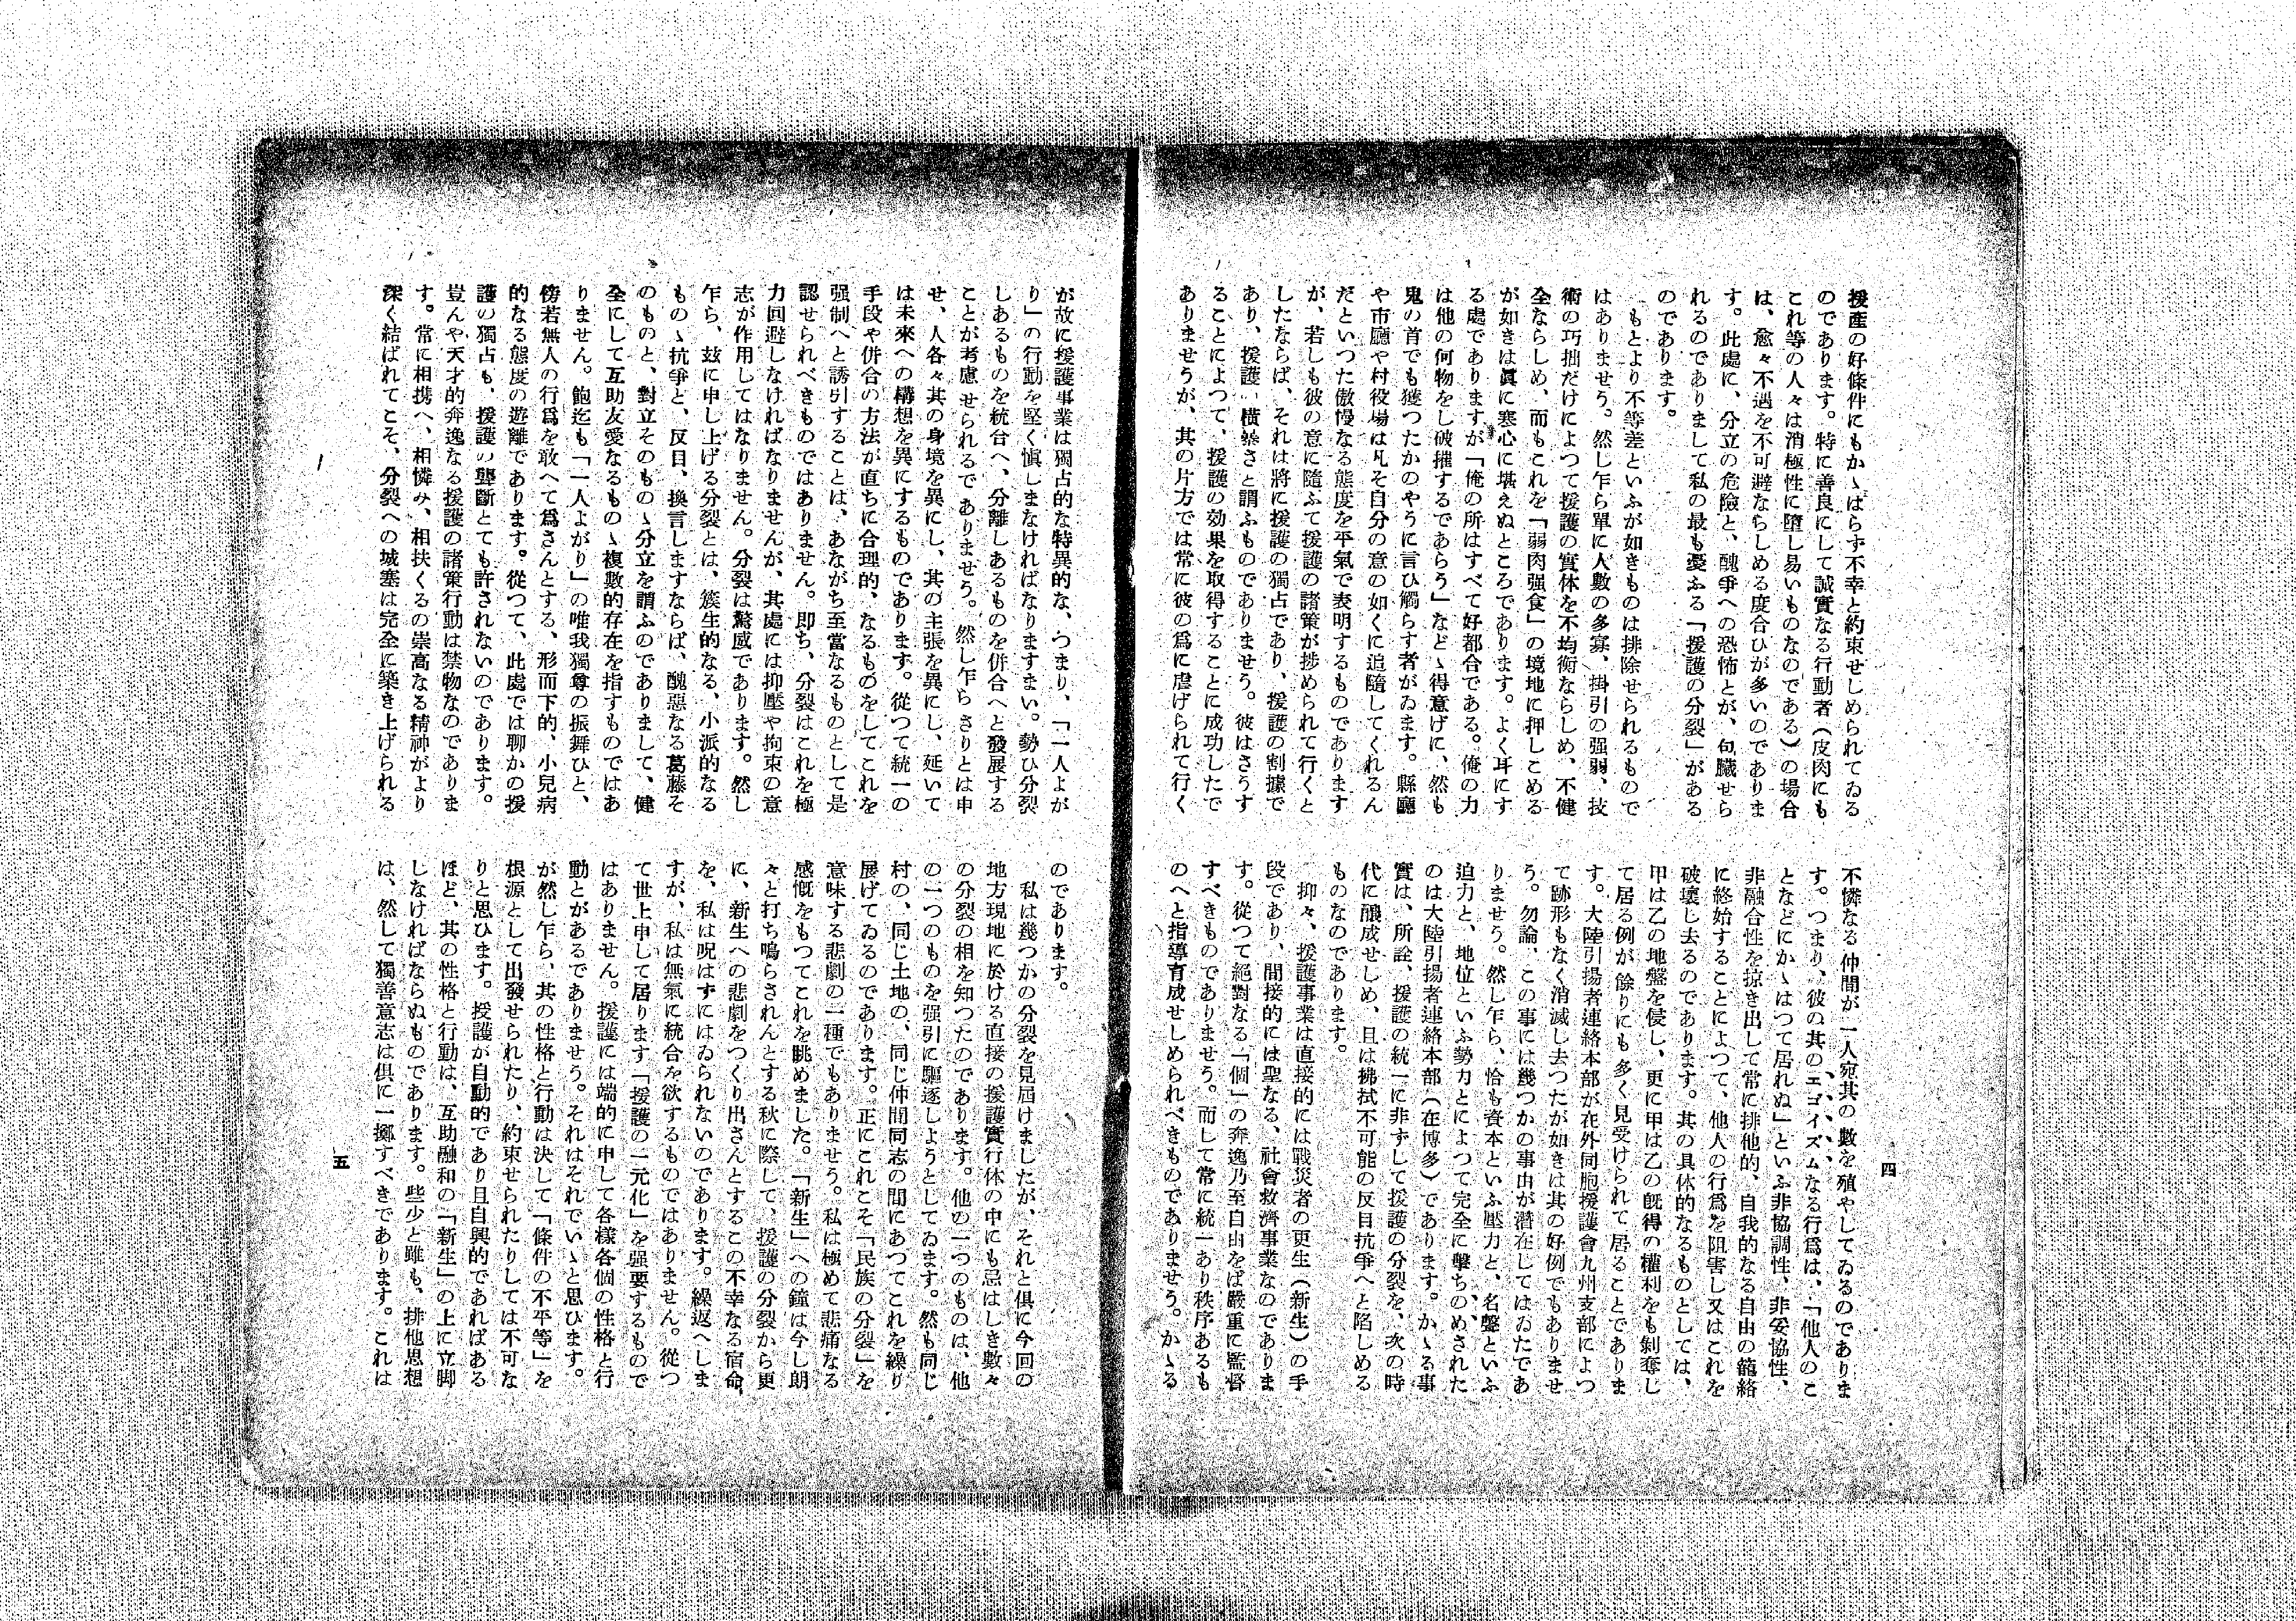 援產の好條件にもかゝはらず不幸と約束せしめられてゐる
のであります。特に善良にして誠實なる行動者（皮肉にも
これ等の人々は消極性に墮し易いものなのである）の場合
は、愈々不遇を不可避ならしめる度合ひが多いのでありま
す。此處に、分立の危險と、醜爭への恐怖とが、包臟せら
れるのでありまして私の最も憂ふる「援護の分裂」がある
のであります。
もとより不等差といふが如きものは排除せられるもので
はありませう。然し乍ら單に人數の多寡、掛引の强弱、技
術の巧拙だけによつて援護の實体を不均衡ならしめ、不健
全ならしめ、而もこれを「弱肉强食」の境地に押しこめる
が如きは眞に寒心に堪えぬところであります。よく耳にす
る處でありますが「俺の所はすべて好都合である。俺の力
は他の何物をし破摧するであらう」などゝ得意げに、然も
鬼の首でも獲つたかのやうに言ひ觸らす者がゐます。縣廳
や市廳や村役場は凡そ自分の意の如くに追隨してくれるん
だといつた傲慢なる態度を平氣で表明するものであります
が、若しも彼の意に隨ふて援護の諸策が捗められて行くと
したならば、それは將に援護の獨占であり、援護の割據で
あり、援護の橫暴さと謂ふものでありませう。彼はさうす
ることによつて、援護の効果を取得することに成功したで
ありませうが、其の片方では常に彼の爲に虐げられて行く
不憐なる仲間が一人宛其の數を殖やしてゐるのでありま
す。つまり、彼の其のエゴイズムなる行爲は、「他人のこ
となどにかゝはつて居れぬ」といふ非協調性、非妥協性、
非融合性を掠き出して常に排他的、自我的なる自由の籠絡
に終始することによつて、他人の行爲を阻害し又はこれを
破壞し去るのであります。其の具体的なるものとしては、
甲は乙の地盤を侵し、更に甲は乙の旣得の權利をも剝奪し
て居る例が餘りにも多く見受けられて居ることでありま
す。大陸引揚者連絡本部が在外同胞援護會九州支部によつ
て跡形もなく消滅し去つたが如きは其の好例でもありませ
う。勿論、この事には幾つかの事由が潛在してはゐたであ
りませう。然し乍ら、恰も資本といふ壓力と、名聲といふ
迫力と、地位といふ勢力とによつて完全に擊ちのめされた
のは大陸引揚者連絡本部（在博多）であります。かゝる事
實は、所詮、援護の統一に非ずして援護の分裂を、次の時
代に釀成せしめ、且は拂拭不可能の反目抗爭へと陷しめる
ものなのであります。
抑々、援護事業は直接的には戰災者の更生（新生）の手
段であり、間接的には聖なる、社會救濟事業なのでありま
す。從つて絕對なる「個」の奔逸乃至自由をば嚴重に監督
すべきものでありませう。而して常に統一あり秩序あるも
のへと指導育成せしめられべきものでありませう。かゝる
四
が故に援護事業は獨占的な特異的な、つまり、「一人よが
り」の行動を堅く愼しまなければなりますまい。勢ひ分裂
しあるものを統合へ、分離しあるものを併合へと發展する
ことが考慮せられるでありませう。然し乍らさりとは申
せ、人各々其の身境を異にし、其の主張を異にし、延いて
は未來への構想を異にするものであります。從つて統一の
手段や併合の方法が直ちに合理的、なるものをしてこれを
强制へと誘引することは、あながち至當なるものとして是
認せられべきものではありません。即ち、分裂はこれを極
力回避しなければなりませんが、其處には抑壓や拘束の意
志が作用してはなりません。分裂は驚威であります。然し
乍ら、玆に申し上げる分裂とは、簇生的なる、小派的なる
ものゝ抗爭と、反目、換言しますならば、醜惡なる葛藤そ
のものと、對立そのものゝ分立を謂ふのでありまして、健
全にして互助友愛なるものゝ複數的存在を指すものではあ
りません。飽迄も「一人よがり」の唯我獨尊の振舞ひと、
傍若無人の行爲を敢へて爲さんとする、形而下的、小兒病
的なる態度の遊離であります。從つて、此處では聊かの援
護の獨占も、援護の壟斷とても許されないのであります。
豈んや天才的奔逸なる援護の諸策行動は禁物なのでありま
す。常に相携へ、相憐み、相扶くるの崇高なる精神がより
深く結ばれてこそ、分裂への城塞は完全に築き上げられる
のであります。
私は幾つかの分裂を見屆けましたが、それと俱に今回の
地方現地に於ける直接の援護實行体の中にも忌はしき數々
の分裂の相を知つたのであります。他の一つのものは、他
の一つのものを强引に驅逐しようとしてゐます。然も同じ
村の、同じ土地の、同じ仲間同志の間にあつてこれを繰り
展げてゐるのであります。正にこれこそ「民族の分裂」を
意味する悲劇の一種でもありませう。私は極めて悲痛なる
感慨をもつてこれを眺めました。「新生」への鐘は今し朗
々と打ち鳴らされんとする秋に際して、援護の分裂から更
に、新生への悲劇をつくり出さんとするこの不幸なる宿命
を、私は呪はずにはゐられないのであります。繰返へしま
すが、私は無氣に統合を欲するものではありません。從つ
て世上申して居ります「援護の一元化」を强要するもので
はありません。援護には端的に申して各樣各個の性格と行
動とがあるでありませう。それはそれでいゝと思ひます。
が然し乍ら、其の性格と行動は決して「條件の不平等」を
根源として出發せられたり、約束せられたりしては不可な
りと思ひます。援護が自動的であり且自興的であればある
ほど、其の性格と行動は、互助融和の「新生」の上に立脚
しなければならぬものであります。些少と雖も、排他思想
は、然して獨善意志は俱に一擲すべきであります。これは
五